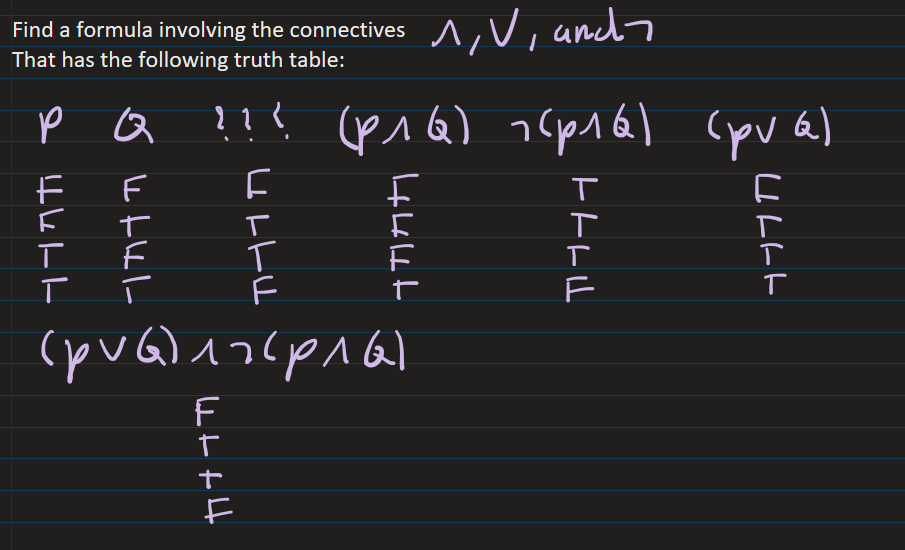 Find a formula involving the connectives ∧, ∨, and ¬
That has the following truth table:
P Q ??? (P∧Q) ¬(P∧Q) (P∨Q)
F F F F T F
F T T F T T
T F T F T T
T T F T F T
(P∨Q)∧¬(P∧Q)
F
T
T
F